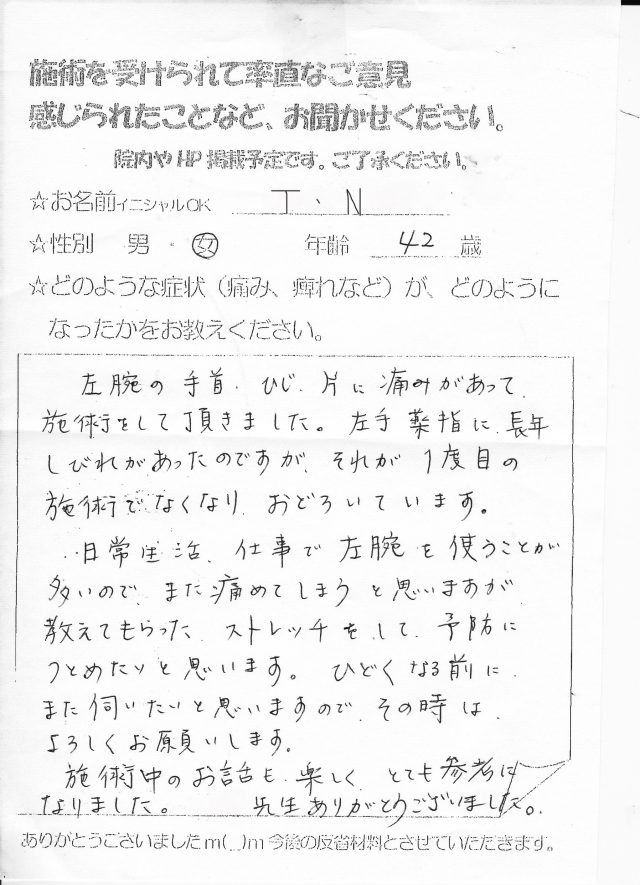 施術を受けられて率直なご意見
感じられたことなど、お聞かせください。
院内やHP掲載予定です。ご了承ください。
☆お名前イニシャルOK T・N
☆性別 男・女 年齢 42 歳
☆どのような症状（痛み、痺れなど）が、どのように
なったかをお教えください。
左腕の手首、ひじ、片に痛みがあって、
施術をして頂きました。左手薬指に、長年
しびれがあったのですが、それが1度目の
施術でなくなり、おどろいています。
日常生活、仕事で左腕を使うことが
多いので、また痛めてしまうと思いますが、
教えてもらった、ストレッチをして、予防に
つとめたいと思います。ひどくなる前に、
また伺いたいと思いますので、その時は、
よろしくお願いします。
施術中のお話も、楽しく、とても参考に
なりました。先生ありがとうございました。
ありがとうございましたm(__)m今後の反省材料とさせていただきます。